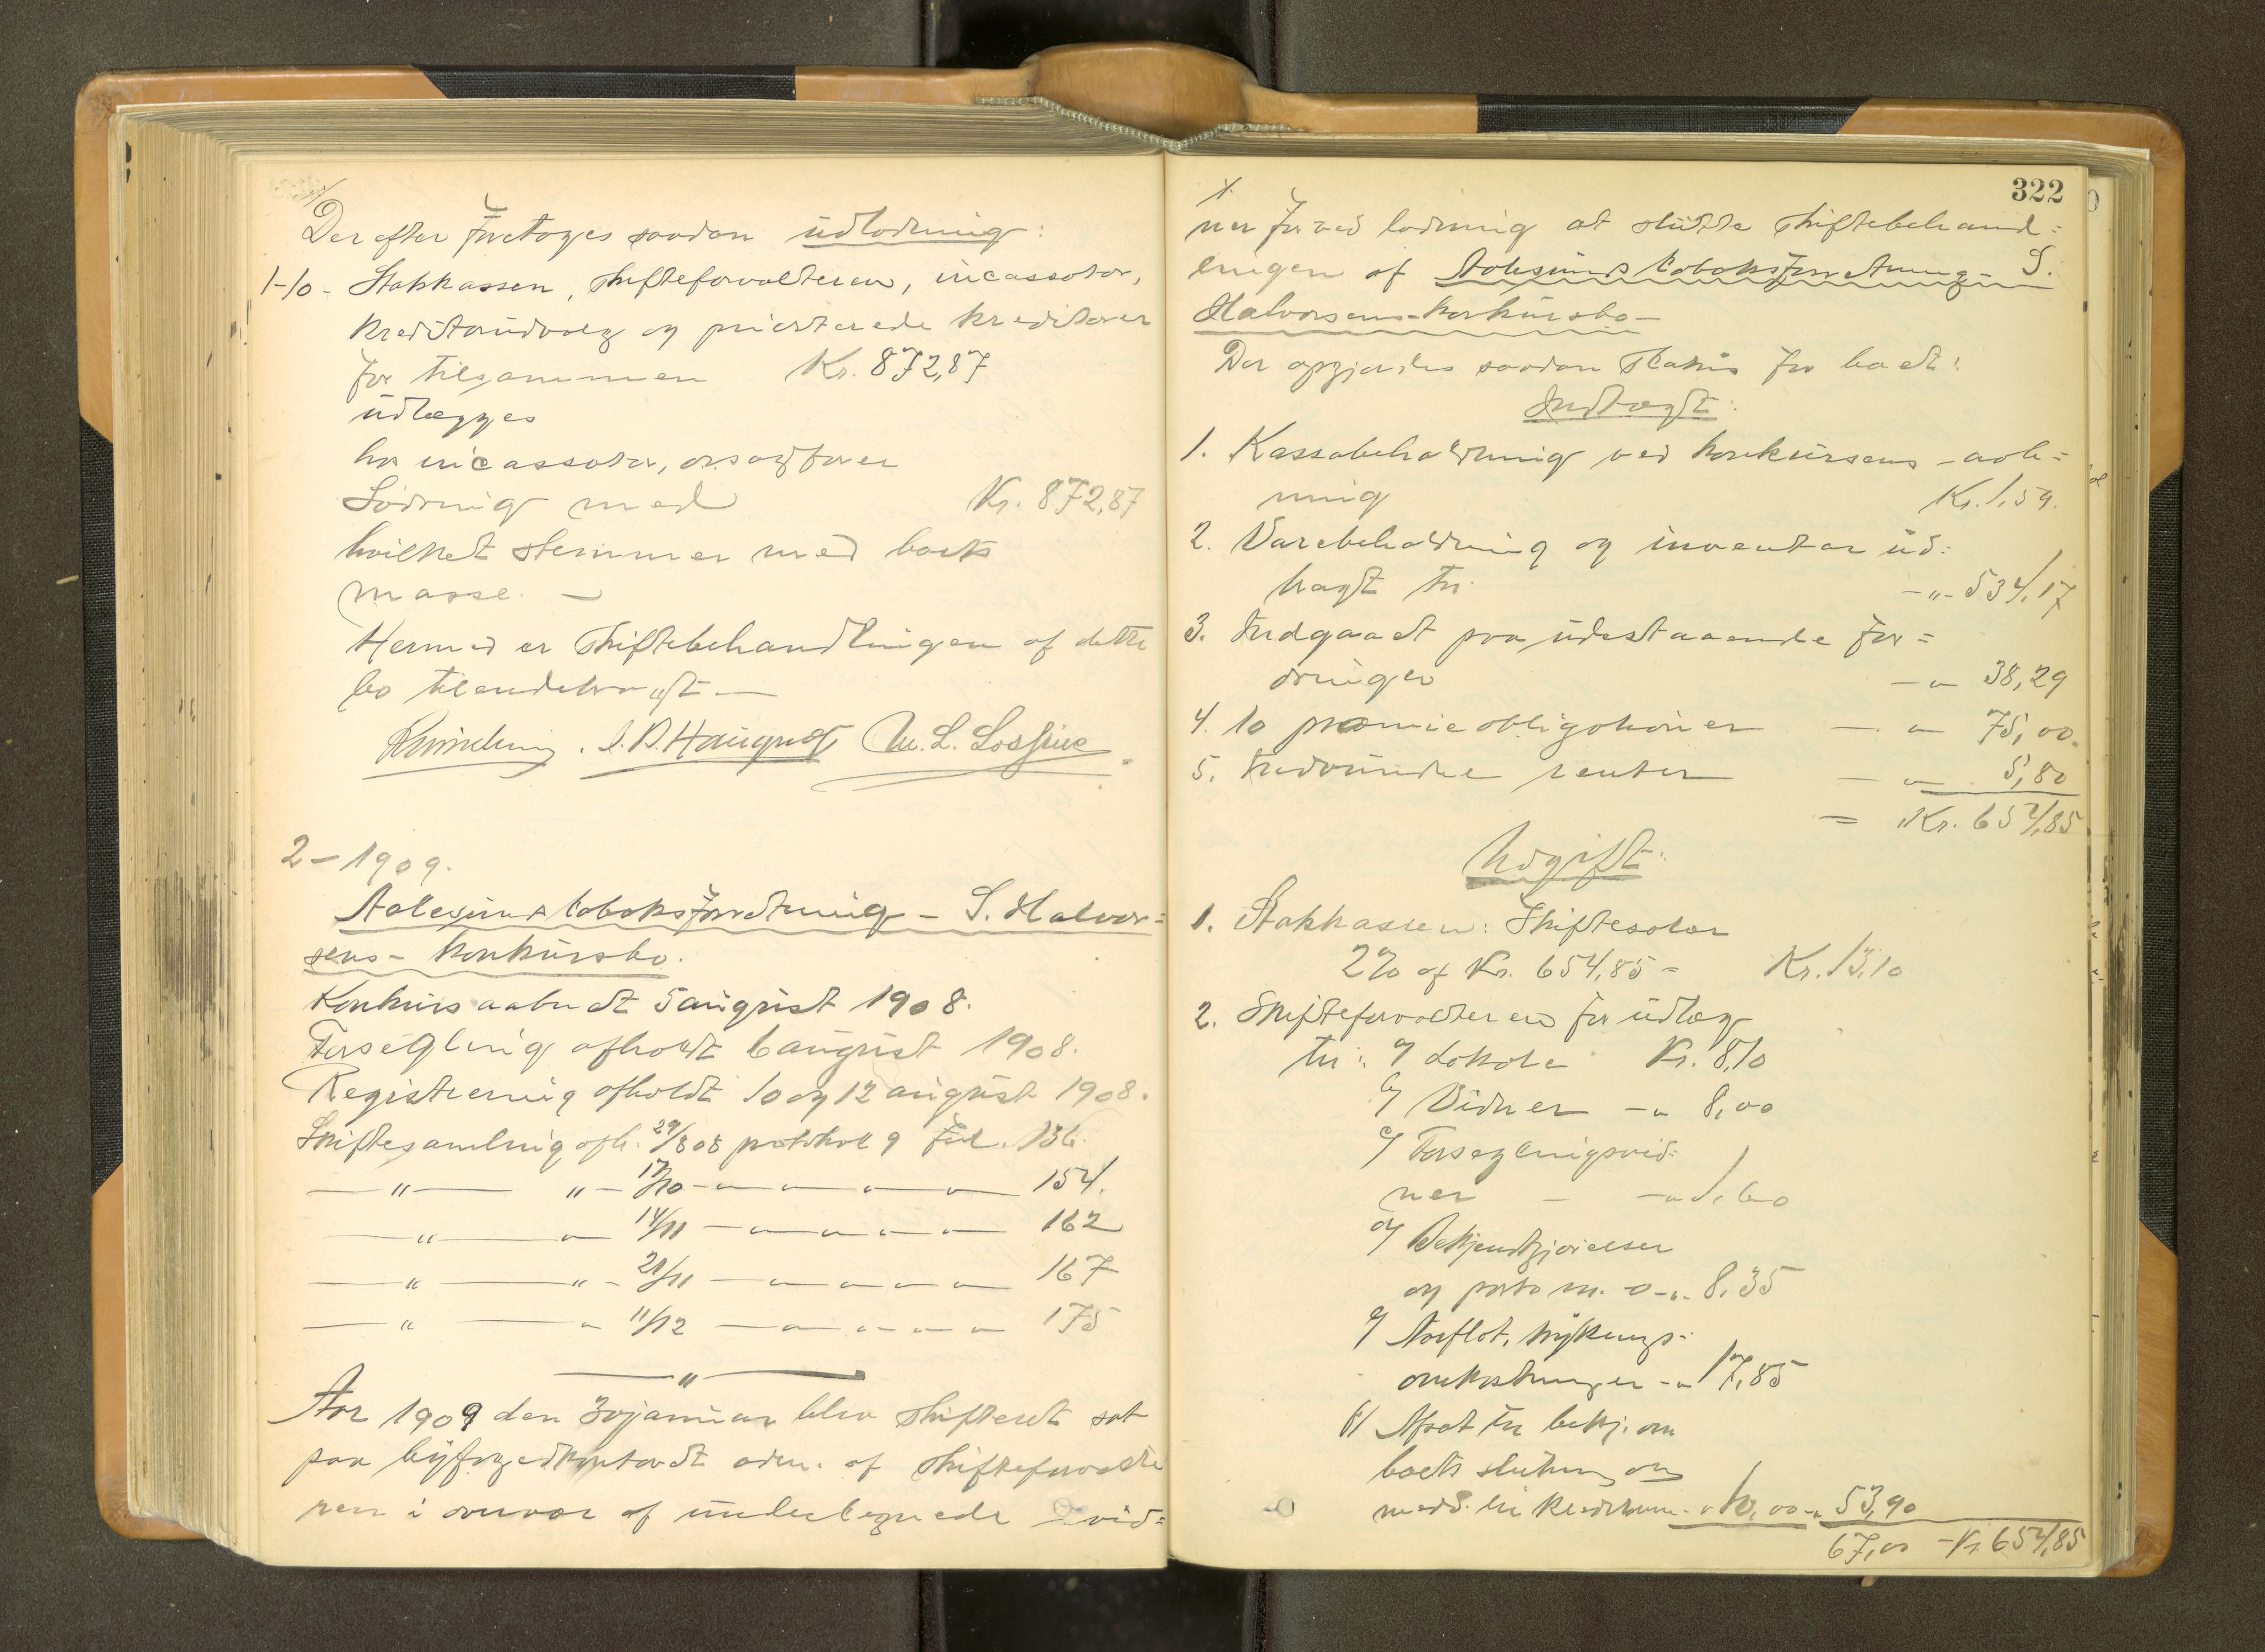 Derefter foretoges saadan udlodning:
1-10- Stakkassen, skifteforvalteren, incassator,
kreditorudvalg og prioriterede kreditorer
for tilsammen Kr. 872,87
udlægges
hos incassator, o.r.sagfører
Lødning med Kr. 872,87
hvilket stemmer med boets
masse. —
Hermed er skiftebehandlingen af dette
bo tilendebragt —
M. L. Lossius
2-1909.
Aalesunds tobaksforretning - S. Halvor=
sens - konkursbo.
Konkurs aabnedt 5 august 1908.
Forsegling afholdt 6 august 1908.
Registrering afholdt 10 og 12 august 1908.
Skiftesamling afh. 29/8 08 protokol 9 fol. 136.
—"— "- 17/10 -"-"-"-"- 154.
—"— " 14/11 -"-"-"-"- 162
—"— "- 21/11 -"-"-"-"- 167
—"— " 11/12 -"-"-"-"- 175
—"—
Aar 1909 den 30 januar blev skifteret sat
paa byfogedkontoret adm. af skifteforvalte
ren i overvær af undertegnede vid=
322
ner for ved lodning at slutte skiftebehand=
lingen af Aalesunds tobaksforretning - S.
Halvorsens - konkursbo -
Der opgjordes saadan status for boet:
Indtægt:
1. Kassabeholdning ved konkursens aab=
ning Kr. 1,59.
2. Varebeholdning og inventar ud=
bragt til -"- 534,17
3. Indgaaet paa udestaaende for=
dringer -"- 38,29
4. 10 præmieobligationer -"- 75,00.
5. Indvundne renter -"- 5,80
= Kr. 654,85
Udgift:
1. Stakkassen: Skiftesalær
2% af Kr. 654,85 = Kr. 13,10
2. Skifteforvalteren for udlæg
til: a/ Lokale Kr. 8,10
b/ Vidner -"- 8,00
c/ Forseglingsvid=
ner - -"- 1,60
d/ Bekjendtgjørelser
og porto m. -"- 8,35
e/ trykings=
omkostninger -"- 17,85
f/ Afsat til bekj. om
boets slutning og
medd. til kreditorerne -"- 10,00 -"- 53,90
67,00 - Kr. 654,85